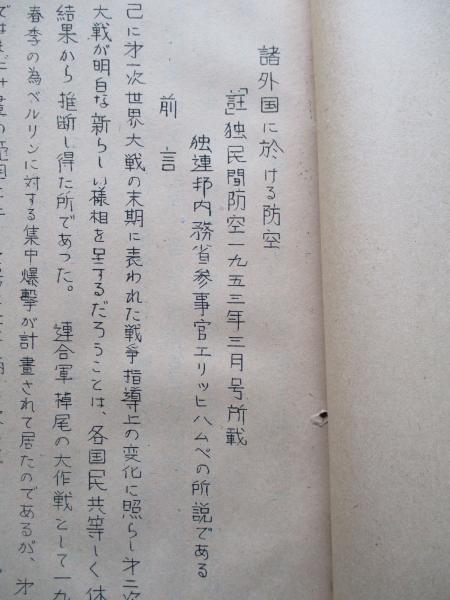 諸外国に於ける防空
「註」独民間防空一九五三年三月号所載
独連邦内務省参事官エリッヒハムペの所説である
前言
己に才一次世界大戦の末期に表われた戦争指導上の変化に照らし才二次
大戦が明白な新らしい様相を呈するだろうことは、各国民共等しく体
結果から推断し得た所であった。 連合軍掉尾の大作戦として一九
春季の為ベルリンに対する集中爆撃が計畫されて居たのであるが、才